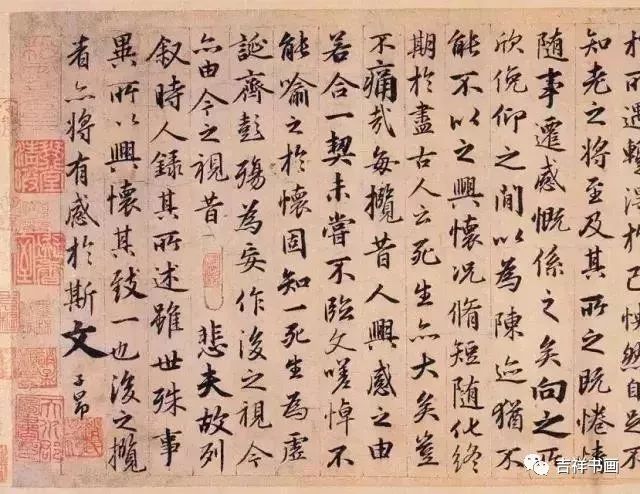 於所遇蹔得於己怏然自足不
知老之將至及其所之既惓情
随事遷感慨係之矣向之所
欣俛仰之閒以為陳迹猶不
能不以之興懷况脩短随化終
期於盡古人云死生亦大矣豈
不痛哉每攬昔人興感之由
若合一契未嘗不臨文嗟悼不
能喻之於懷固知一死生為虛
誕齊彭殤為妄作後之視今
亦由今之視昔 悲夫故列
叙時人錄其所述雖世殊事
異所以興懷其致一也後之攬
者亦將有感於斯文 子昂
吉祥书画